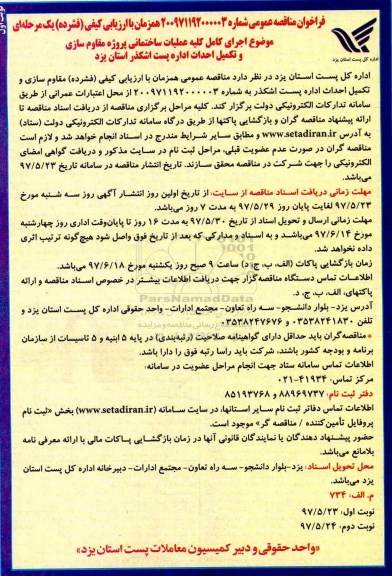 نوبت اول
فراخوان مناقصه عمومی شماره ۲۰۰۹۷۱۱۹۲۰۰۰۰۰۳ همزمان با ارزیابی کیفی (فشرده) یک مرحله‌ای
موضوع اجرای کامل کلیه عملیات ساختمانی پروژه مقاوم سازی
و تکمیل احداث اداره پست اشکذر استان یزد
اداره کل پست استان یزد
اداره کل پست استان یزد در نظر دارد مناقصه عمومی همزمان با ارزیابی کیفی (فشرده) مقاوم سازی و
تکمیل احداث اداره پست اشکذر به شماره ۲۰۰۹۷۱۱۹۲۰۰۰۰۰۳ از محل اعتبارات عمرانی از طریق
سامانه تدارکات الکترونیکی دولت برگزار کند. کلیه مراحل برگزاری مناقصه از دریافت اسناد مناقصه تا
ارائه پیشنهاد مناقصه گران و بازگشایی پاکتها از طریق درگاه سامانه تدارکات الکترونیکی دولت (ستاد)
به آدرس www.setadiran.ir و مطابق سایر شرایط مندرج در اسناد انجام خواهد شد و لازم است
مناقصه گران در صورت عدم عضویت قبلی، مراحل ثبت نام در سایت مذکور و دریافت گواهی امضای
الکترونیکی را جهت شرکت در مناقصه محقق سازند. تاریخ انتشار مناقصه در سامانه تاریخ ۹۷/۵/۲۳
می‌باشد.
مهلت زمانی دریافت اسناد مناقصه از سایت: از تاریخ اولین روز انتشار آگهی روز سه شنبه مورخ
۹۷/۵/۲۳ لغایت پایان روز ۹۷/۵/۲۹ به مدت ۷ روز می‌باشد.
مهلت زمانی ارسال و تحویل اسناد از تاریخ ۹۷/۵/۳۰ به مدت ۱۶ روز تا پایان‌وقت اداری روز چهارشنبه
مورخ ۹۷/۶/۱۴ می‌باشد و به اسناد و مدارکی که بعد از تاریخ فوق واصل شود هیچ‌گونه ترتیب اثری
داده نخواهد شد.
زمان بازگشایی پاکات (الف، ب، ج، د) ساعت ۹ صبح روز یکشنبه مورخ ۹۷/۶/۱۸ می‌باشد.
اطلاعات تماس دستگاه مناقصه‌گزار جهت دریافت اطلاعات بیشتر در خصوص اسناد مناقصه و ارائه
پاکتهای، الف، ب، ج، د.
آدرس یزد- بلوار دانشجو- سه راه تعاون- مجتمع ادارات- واحد حقوقی اداره کل پست استان یزد و
تلفن ۰۳۵۳۸۲۴۱۸۳۰ و ۰۳۵۳۸۲۴۷۶۷۶
* مناقصه‌گران باید حداقل دارای گواهینامه صلاحیت (رتبه‌بندی) در پایه ۵ ابنیه و ۵ تاسیسات از سازمان
برنامه و بودجه کشور باشند، شرکت باید راسا رتبه فوق را دارا باشد.
اطلاعات تماس سامانه ستاد جهت انجام مراحل عضویت در سامانه:
مرکز تماس: ۴۱۹۳۴-۰۲۱
دفتر ثبت نام: ۸۸۹۶۹۷۳۷ و ۸۵۱۹۳۷۶۸
اطلاعات تماس دفاتر ثبت نام سایر استانها، در سایت سامانه (www.setadiran.ir) بخش «ثبت نام
پروفایل تأمین‌کننده / مناقصه گر» موجود است.
حضور پیشنهاد دهندگان یا نمایندگان قانونی آنها در زمان بازگشایی پاکات مالی با ارائه معرفی نامه
بلامانع می‌باشد.
محل تحویل اسناد: یزد-بلوار دانشجو- سه راه تعاون- مجتمع ادارات- دبیرخانه اداره کل پست استان
یزد می‌باشد.
م. الف: ۷۳۴
نوبت اول: ۹۷/۵/۲۳
نوبت دوم: ۹۷/۵/۲۴
«واحد حقوقی و دبیر کمیسیون معاملات پست استان یزد»